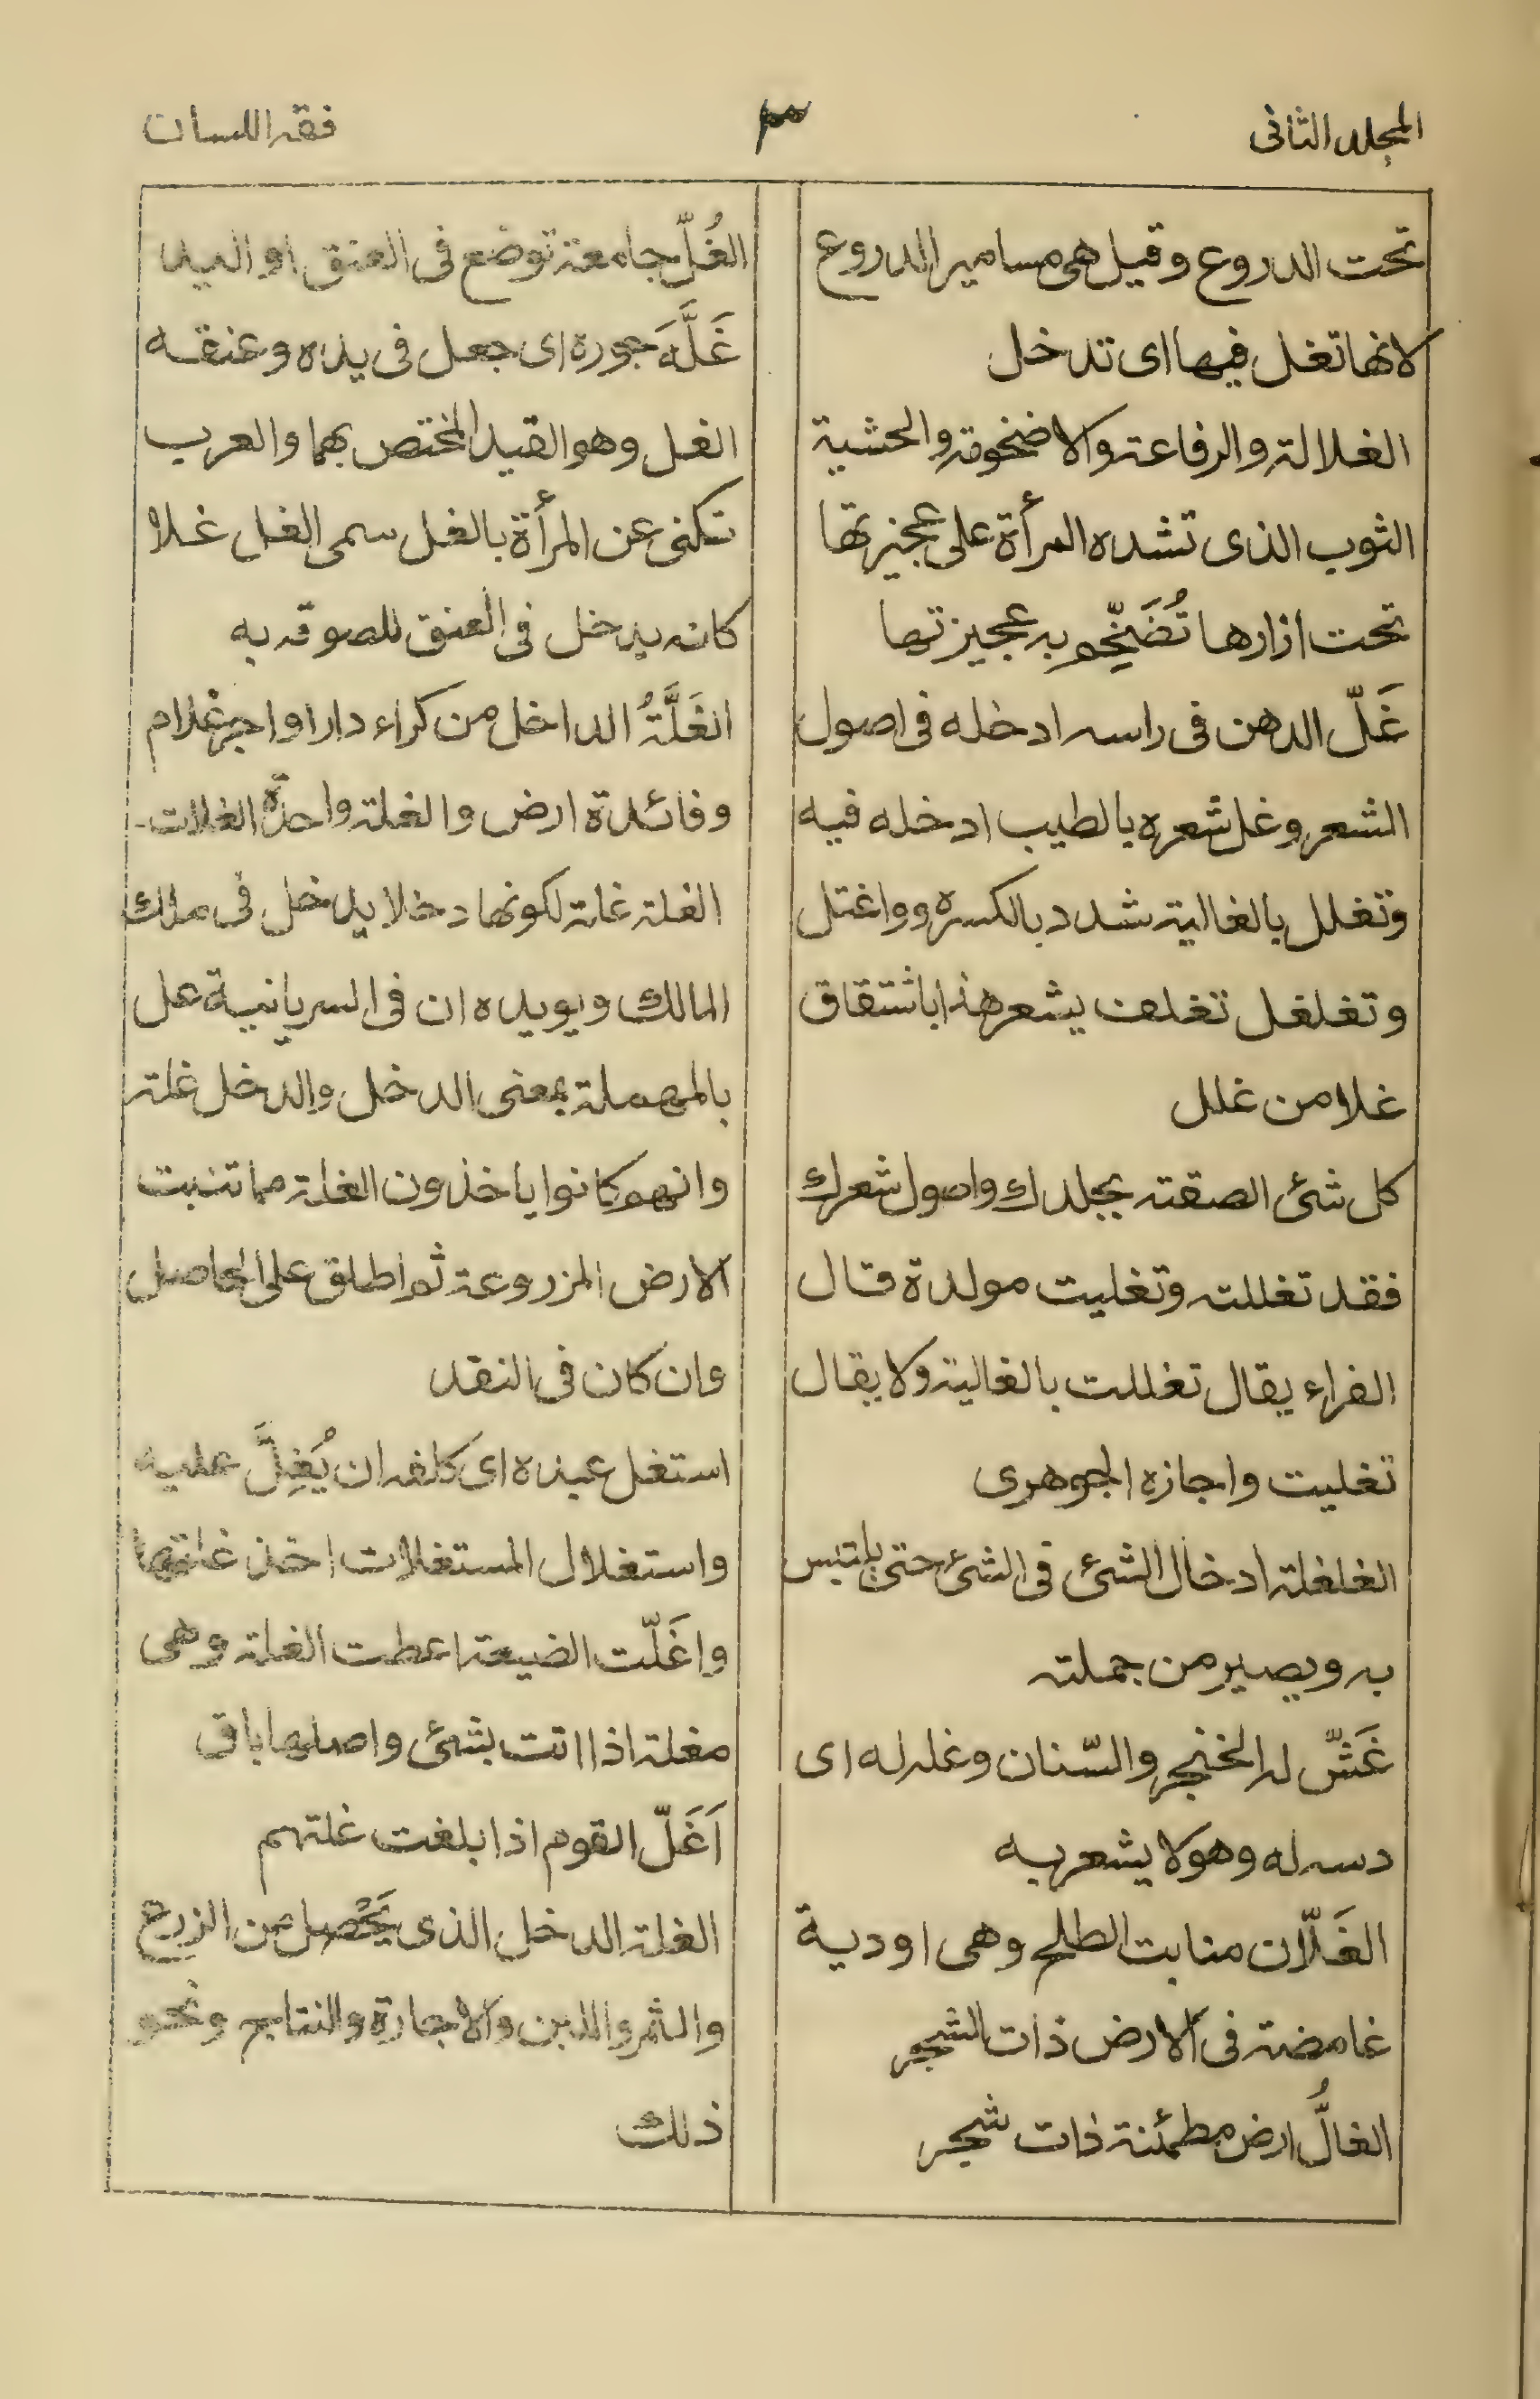 المجلد الثانى
فقه اللسان
تحت الدروع وقيل هى مسامير الدروع
لانها تغل فيها اى تدخل
الغلالة والرفاعة والاضخومة والحشية
الثوب الذى تشده المرأة على عجيزتها
تحت ازارها تُضَخِّم به عجيزتها
غَلّ الدهن فى راسه ادخله فى اصول
الشعر وغل شعره بالطيب ادخله فيه
وتغلل بالغالية شدد بالكسرة وواغتل
وتغلغل تغلف يشعر هذا باشتقاق
غلا من غلل
كل شئ الصقته بجلدك واصول شعرك
فقد تغللته وتغليت مولدة قال
الفراء يقال تغللت بالغالية ولا يقال
تغليت واجازه الجوهرى
الغلغلة ادخال الشئ فى الشئ حتى يلتبس
به ويصير من جملته
غَشّ له الخنجر والسّنان وغله له اى
دسه له وهو لا يشعر به
الغَلّان منابت الطلح وهى اودية
غامضة فى الارض ذات الشجر
الغالُّ ارض مطمئنة ذات شجر
الغُلّ جامعة توضع فى العنق او اليد
غَلَّهَ جوره اى جعل فى يده وعنقه
الغل وهو القيد المختص بهما والعرب
تكنى عن المرأة بالغل سمى الغل غلا
كانه يدخل فى العنق للصوقه به
الغَلَّةُ الداخل من كراء دار او اجر غلام
وفائدة ارض والغلة واحدة الغلات-
الغلة غلة لكونها دخلا يدخل فى ملك
المالك ويويده ان فى السريانية عل
بالمهملة بمعنى الدخل والدخل غلة
وانهم كانوا ياخذون الغلة مما تنبت
الارض المزروعة ثم اطلق على الحاصل
وان كان فى النقد
استغل عبده اى كلفه ان يُغِلَّ عليه
واستغلال المستغلات اخذ غلتها
واغَلّت الضيعة اعطت الغلة وهى
مغلة اذا اتت بشئ واصلها باق
اَغَلّ القوم اذا بلغت غلتهم
الغلة الدخل الذى يَحْصل من الزرع
والثمر واللبن والاجارة والنتاج ونحو
ذلك